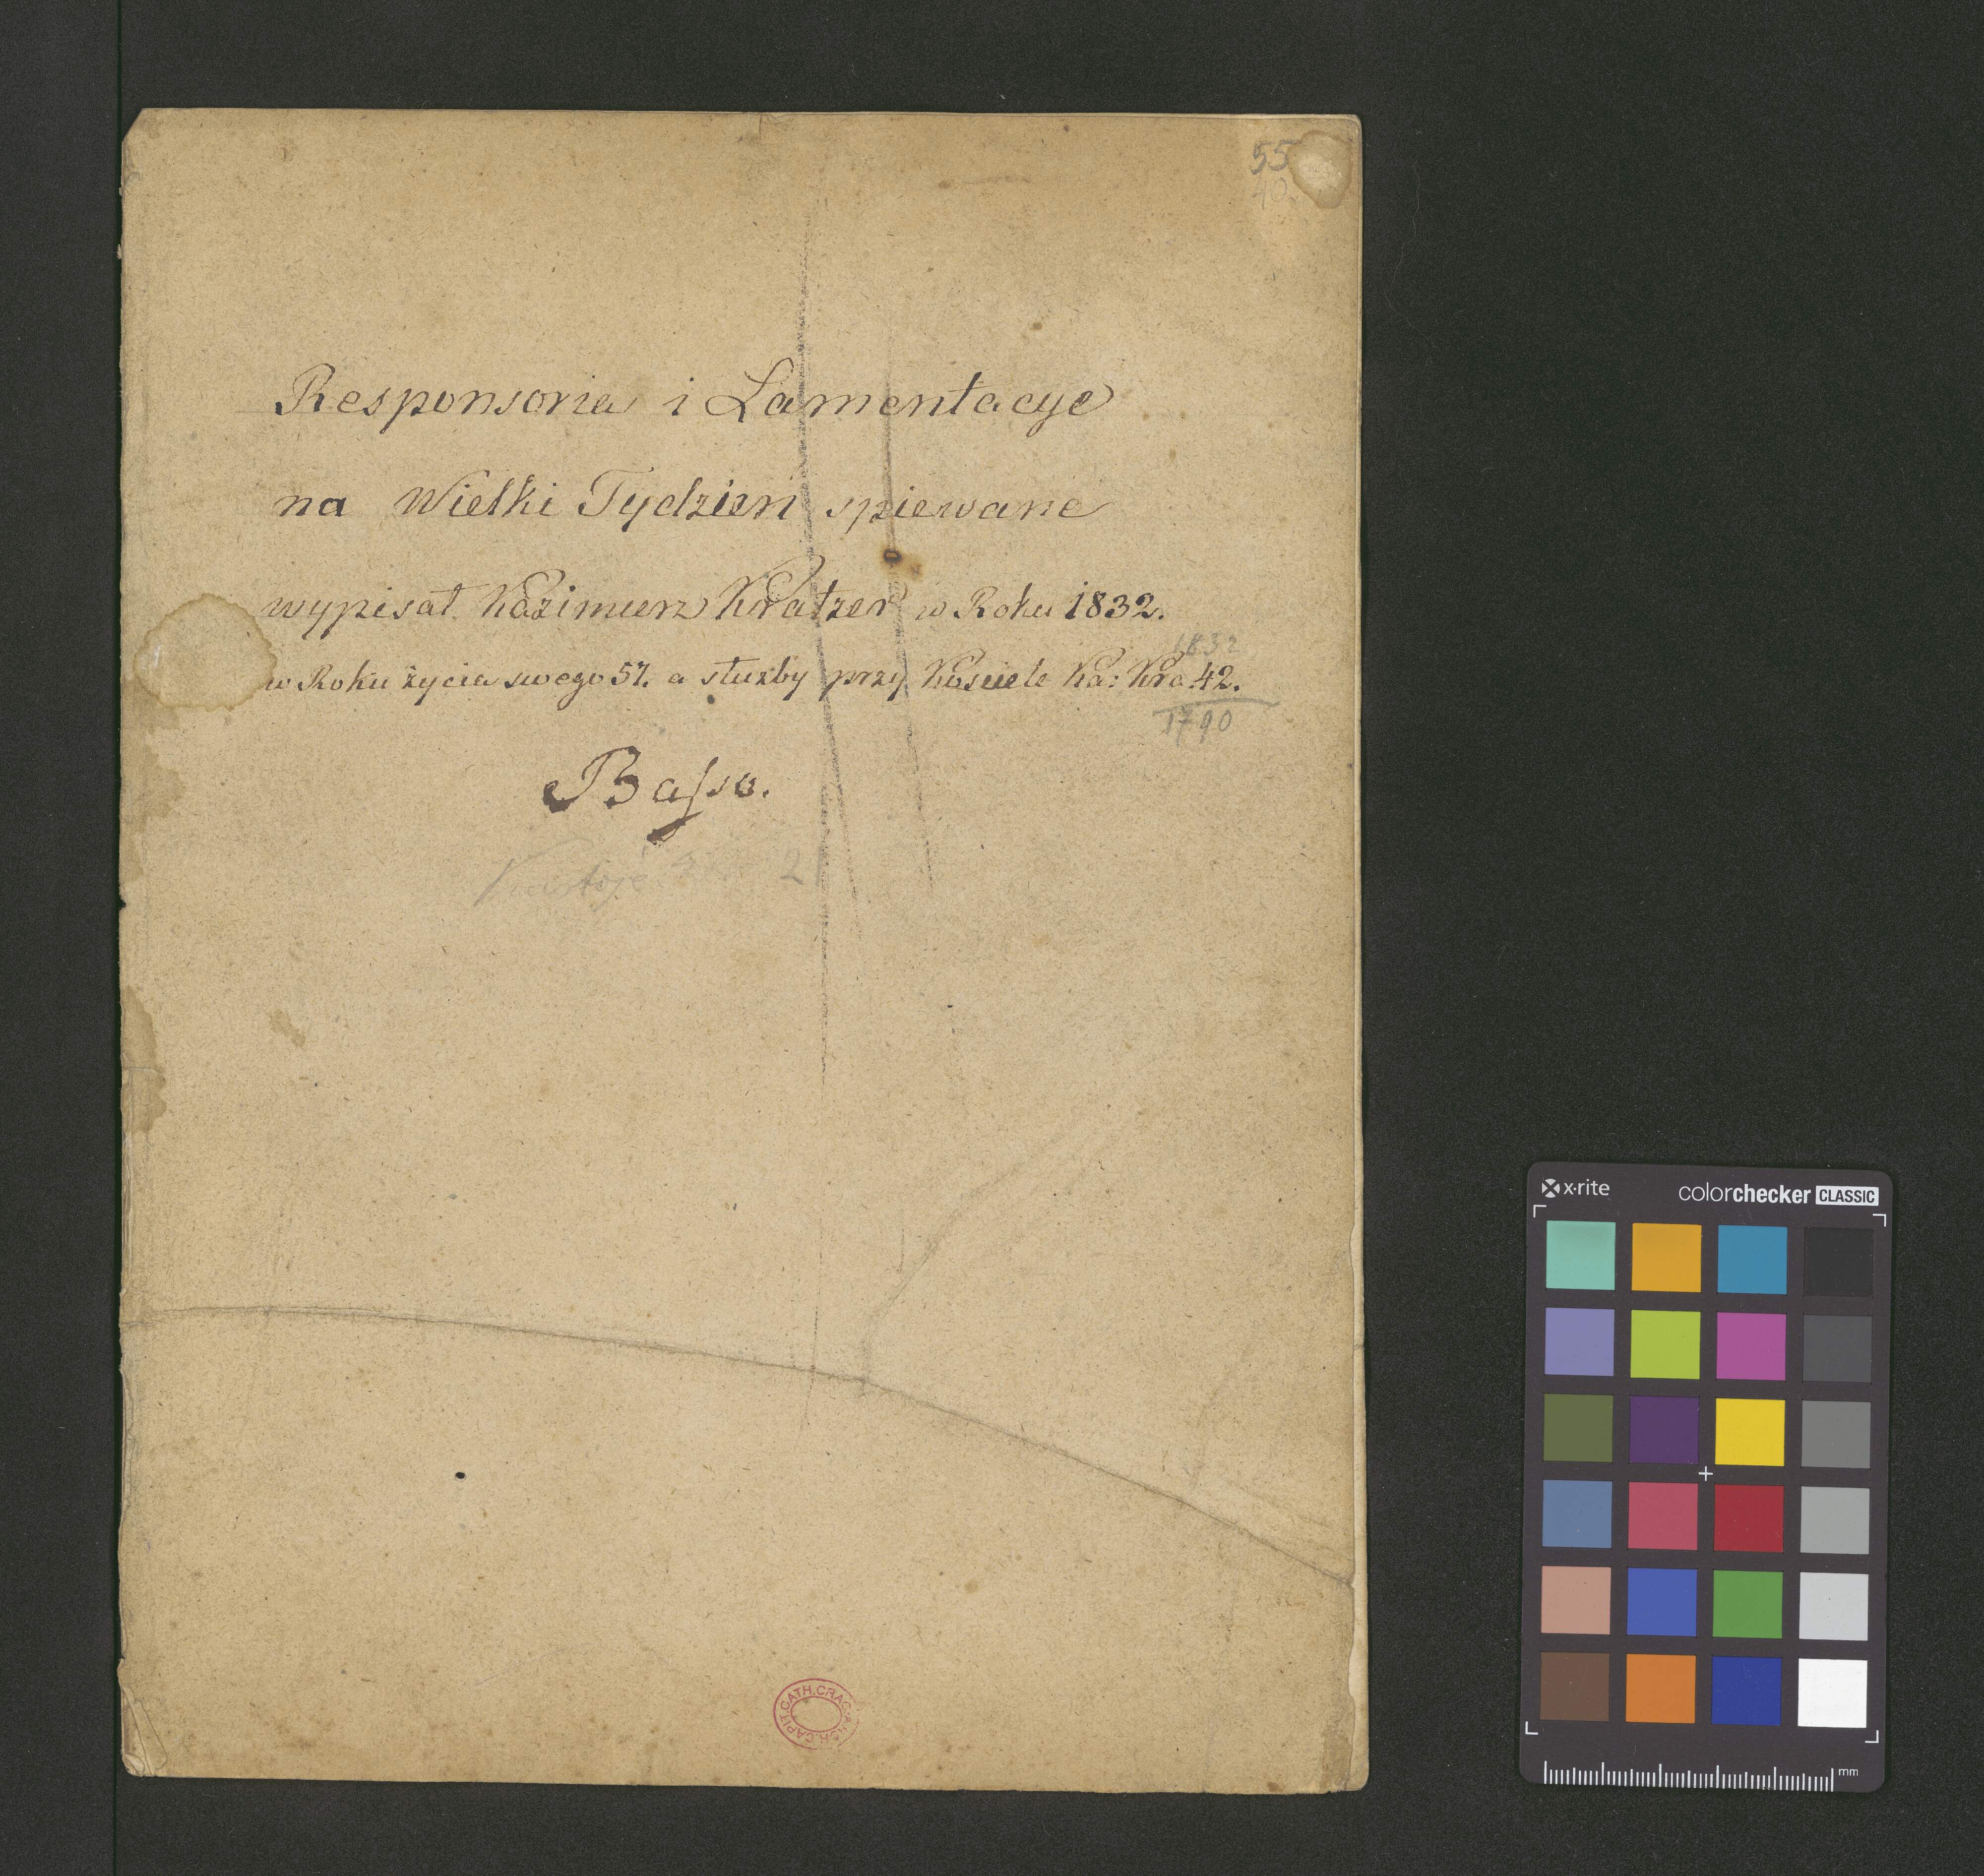 55
40.
Responsoria i Lamentacye
na Wielki Tydzień spiewane
wypisał Kazimierz Kratzer w Roku 1832.
1832
w Roku życia swego 57. a służby przy Kosciele Ka: Kra: 42.
1790
Basso.
2
CAPIT. CATH. CRAC.
x-rite
colorchecker CLASSIC
mm